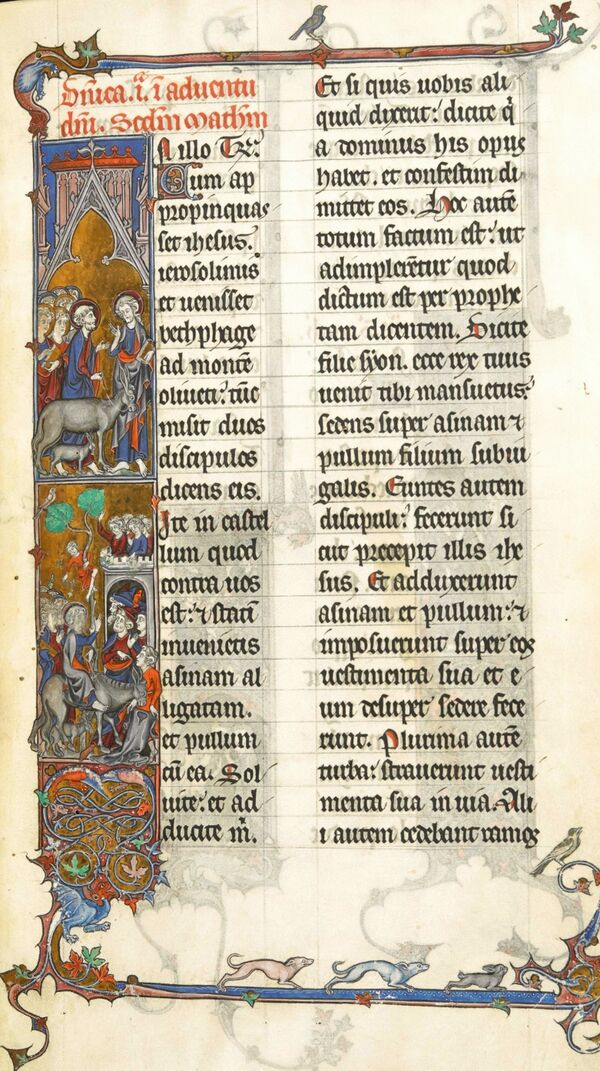 Dnica. i. i aduentu
dni. Scdm Mathm
In illo Tr̄:
Cum ap
propinquas
set ihesus.
ierosolimis
et uenisset
bethphage
ad montē
oliueti: tūc
misit duos
discipulos
dicens eis.
Ite in castel
lum quod
contra uos
est: ⁊ statī
inuenietis
asinam al
ligatam.
et pullum
cū ea. Sol
uite: et ad
ducite m̄.
Et si quis uobis ali
quid dixerit: dicite q̄
a dominus his opus
habet. et confestim di
mittet eos. Hoc autē
totum factum est: ut
adimpleretur quod
dictum est per prophe
tam dicentem. Dicite
filie syon. ecce rex tuus
uenit tibi mansuetus:
sedens super asinam ⁊
pullum filium subiu
galis. Euntes autem
discipuli: fecerunt si
cut precepit illis ihe
sus. Et adduxerunt
asinam et pullum: ⁊
imposuerunt super eos
uestimenta sua et e
um desuper sedere fece
runt. Plurima autē
turba: strauerunt uesti
menta sua in uia. Ali
i autem cedebant ramos